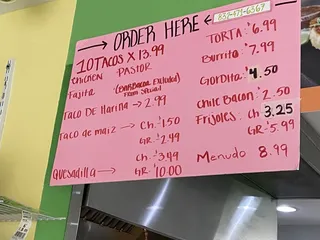 ORDER HERE
10 TACOS x 13.99
CHICKEN PASTOR
Fajita (BARBACOA EXCLUDED
FROM SPECIAL)
TACO DE Harina → 2.99
Taco de maiz → Ch. 1.50
GR. 2.49
Quesadilla → Ch. 3.49
GR. 10.00
TORTA 6.99
Burrito 7.99
Gordita 4.50
Chile Bacon 2.50
Frijoles Ch 3.25
GR. 5.99
Menudo 8.99